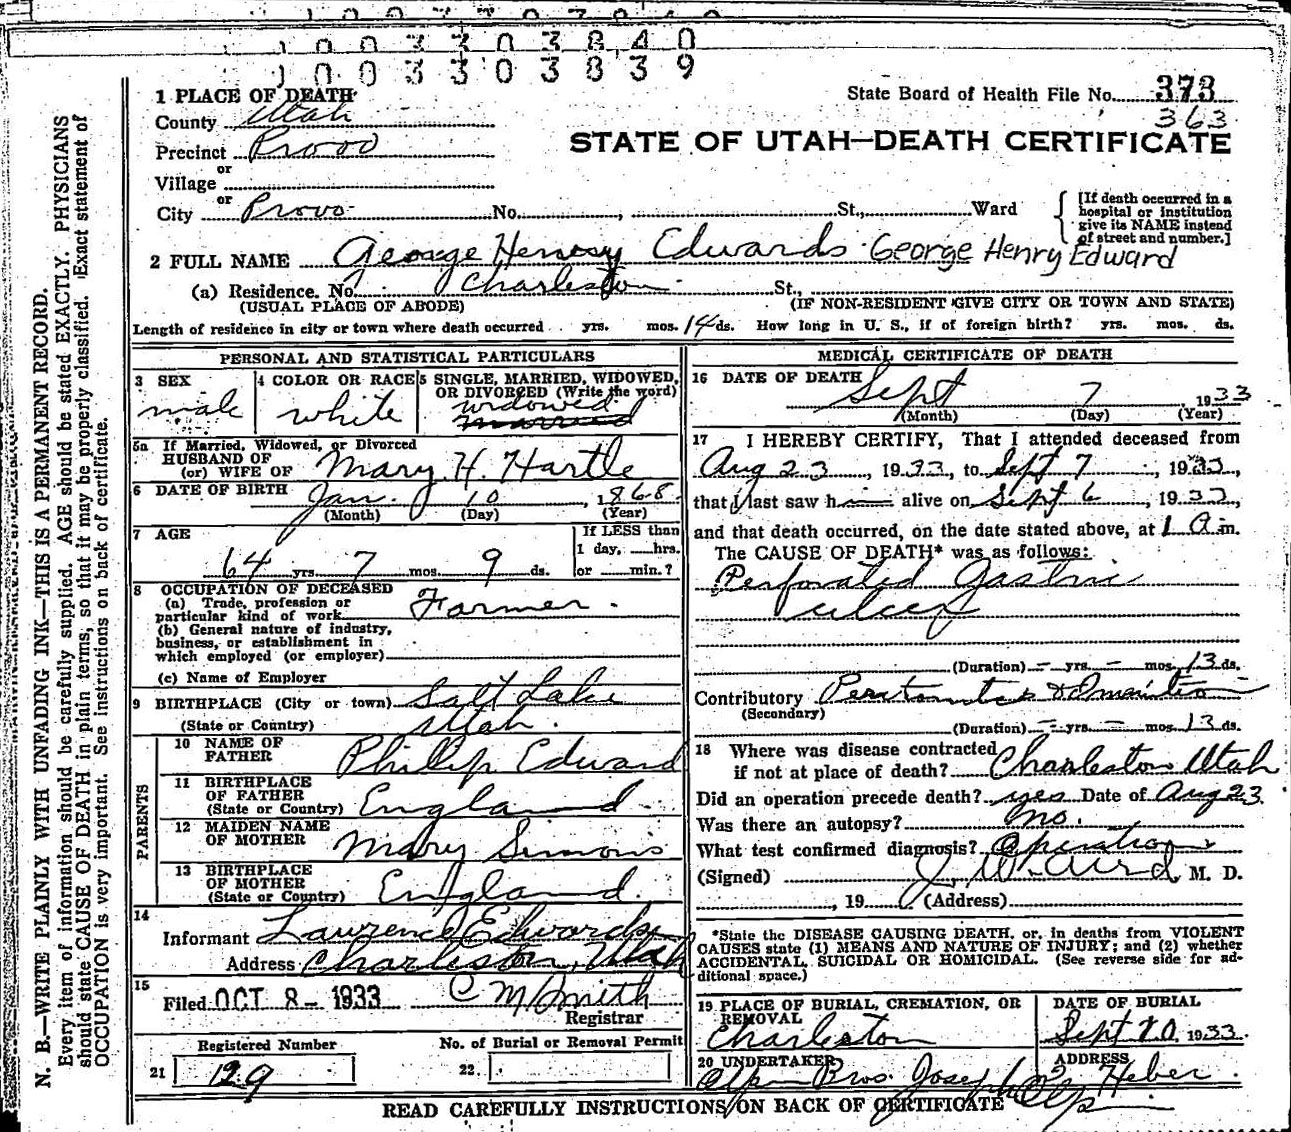 1 0 0 3 3 0 3 8 4 0
1 0 0 3 3 0 3 8 3 9
State Board of Health File No. 373
363
STATE OF UTAH—DEATH CERTIFICATE
1 PLACE OF DEATH
County Utah
Precinct Provo
or
Village
or
City Provo No. , St., Ward
[If death occurred in a
hospital or institution
give its NAME instead
of street and number.]
2 FULL NAME George Henry Edwards George Henry Edward
(a) Residence. No. Charleston St.,
(USUAL PLACE OF ABODE) (IF NON-RESIDENT GIVE CITY OR TOWN AND STATE)
Length of residence in city or town where death occurred yrs. mos. 14 ds. How long in U. S., if of foreign birth? yrs. mos. ds.
PERSONAL AND STATISTICAL PARTICULARS
3 SEX
male
4 COLOR OR RACE
white
5 SINGLE, MARRIED, WIDOWED,
OR DIVORCED (Write the word)
widowed
married
5a If Married, Widowed, or Divorced
HUSBAND OF
(or) WIFE OF Mary H. Hartle
6 DATE OF BIRTH Jan. 10, 1868
(Month) (Day) (Year)
7 AGE
64 yrs. 7 mos. 9 ds.
If LESS than
1 day, hrs.
or min.?
8 OCCUPATION OF DECEASED
(a) Trade, profession or
particular kind of work Farmer.
(b) General nature of industry,
business, or establishment in
which employed (or employer)
(c) Name of Employer
9 BIRTHPLACE (City or town) Salt Lake
(State or Country) Utah.
PARENTS
10 NAME OF
FATHER Phillip Edward
11 BIRTHPLACE
OF FATHER
(State or Country) England.
12 MAIDEN NAME
OF MOTHER Mary Simons
13 BIRTHPLACE
OF MOTHER
(State or Country) England.
14
Informant Lawrence Edwards
Address Charleston, Utah
15
Filed OCT 8 - 1933 C M Smith
Registrar
Registered Number
21 129
No. of Burial or Removal Permit
22.
MEDICAL CERTIFICATE OF DEATH
16 DATE OF DEATH Sept 7, 1933
(Month) (Day) (Year)
17 I HEREBY CERTIFY, That I attended deceased from
Aug 23, 1933, to Sept 7, 1933,
that I last saw him alive on Sept 6, 1933,
and that death occurred, on the date stated above, at 1 a m.
The CAUSE OF DEATH* was as follows:
Perforated Gastric
ulcer
(Duration) – yrs. – mos. 13 ds.
Contributory Peritonitis & Inanition
(Secondary)
(Duration) – yrs. – mos. 13 ds.
18 Where was disease contracted
if not at place of death? Charleston Utah
Did an operation precede death? yes Date of Aug 23.
Was there an autopsy? no.
What test confirmed diagnosis? Operation
(Signed) J. W. Aird, M. D.
, 19 (Address)
*State the DISEASE CAUSING DEATH, or, in deaths from VIOLENT
CAUSES state (1) MEANS AND NATURE OF INJURY; and (2) whether
ACCIDENTAL, SUICIDAL OR HOMICIDAL. (See reverse side for ad-
ditional space.)
19 PLACE OF BURIAL, CREMATION, OR
REMOVAL
Charleston
DATE OF BURIAL
Sept 10, 1933.
20 UNDERTAKER
Olpin Bros. Joseph Olpin
ADDRESS
Heber.
READ CAREFULLY INSTRUCTIONS ON BACK OF CERTIFICATE
N. B.—WRITE PLAINLY WITH UNFADING INK—THIS IS A PERMANENT RECORD.
Every item of information should be carefully supplied. AGE should be stated EXACTLY. PHYSICIANS
should state CAUSE OF DEATH in plain terms, so that it may be properly classified. Exact statement of
OCCUPATION is very important. See instructions on back of certificate.